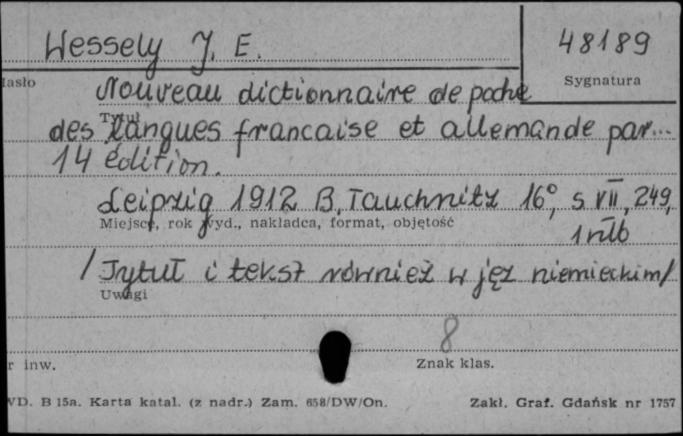 Wessely J. E.
48189
Hasło
Sygnatura
Nouveau dictionnaire de poche
Tytuł
des langues francaise et allemande par...
14 édition.
Leipzig 1912 B. Tauchnitz 16°, s VII, 249,
Miejsce, rok wyd., nakładca, format, objętość
1 nlb
/Tytuł i tekst również w jęz niemieckim/
Uwagi
8
r inw.
Znak klas.
WD. B 15a. Karta katal. (z nadr.) Zam. 658/DW/On.
Zakł. Graf. Gdańsk nr 1757